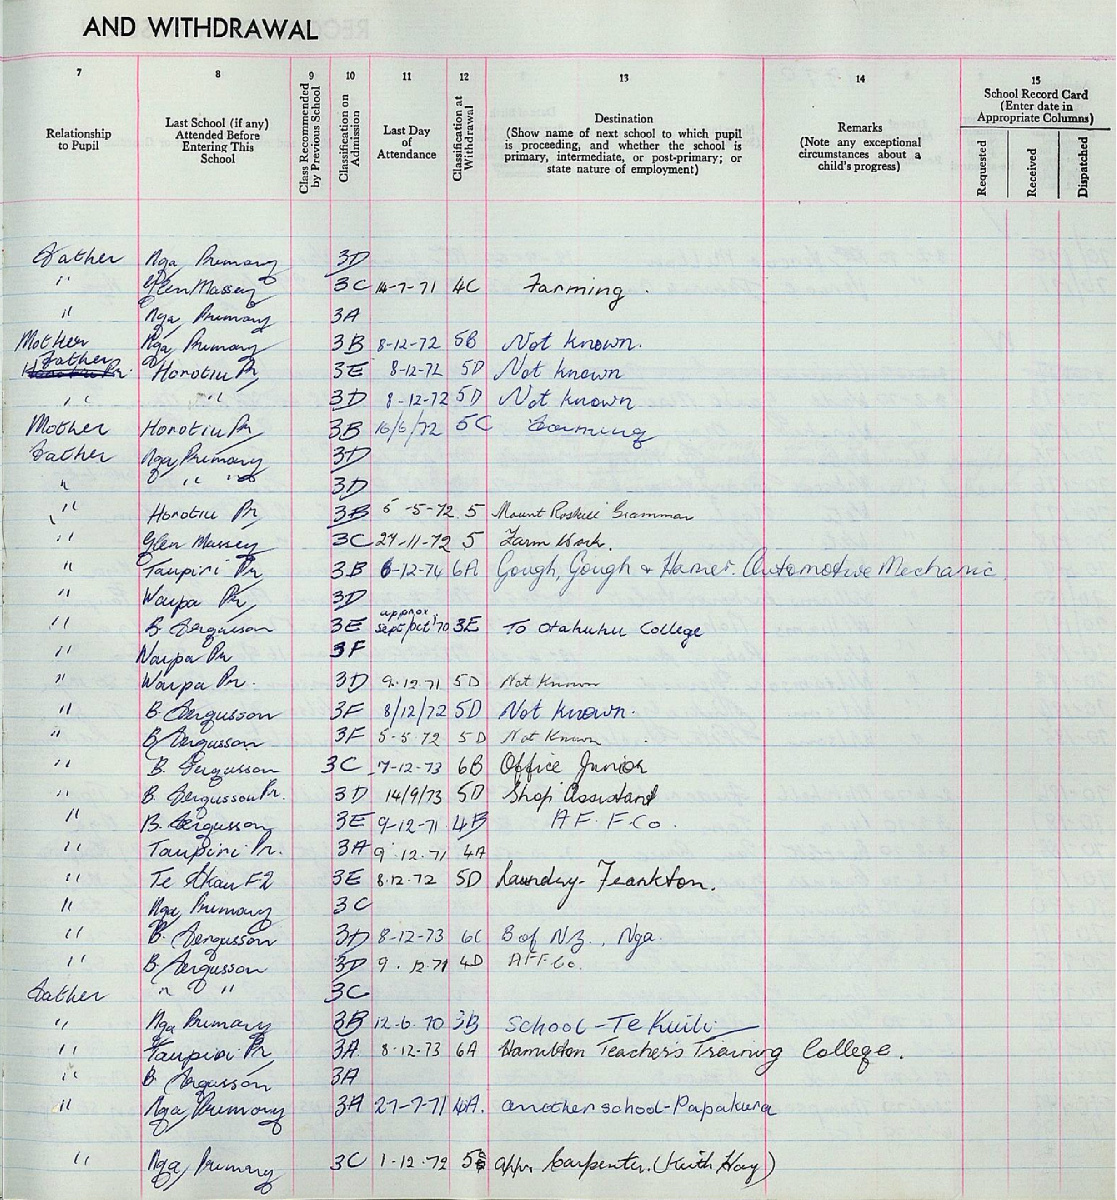 AND WITHDRAWAL
7 8 9 10 11 12 13 14 15
Relationship to Pupil
Last School (if any) Attended Before Entering This School
Class Recommended by Previous School
Classification on Admission
Last Day of Attendance
Classification at Withdrawal
Destination (Show name of next school to which pupil is proceeding, and whether the school is primary, intermediate, or post-primary; or state nature of employment)
Remarks (Note any exceptional circumstances about a child's progress)
School Record Card (Enter date in Appropriate Columns)
Requested Received Dispatched
Father Nga Primary 3D
" Glen Massey 3C 14-7-71 4C Farming.
" Nga Primary 3A
Mother Nga Primary 3B 8-12-72 5B Not Known.
Father Horotiu Pr 3E 8-12-72 5D Not known
" " 3D 8-12-72 5D Not known
Mother Horotiu Pr 3B 16/6/72 5C Farming
Father Nga Primary 3D
" " " 3D
" Horotiu Pr 3B 5-5-72 5 Mount Roskill Grammar
" Glen Massey 3C 27-11-72 5 Farm Work.
" Taupiri Pr 3B 6-12-74 6A Gough, Gough & Hamer. Automotive Mechanic
" Waipa Pr 3D
" B. Fergusson 3E approx Sept/Oct '70 3E To Otahuhu College
" Waipa Pr 3F
" Waipa Pr. 3D 9.12.71 5D Not Known
" B. Fergusson 3F 8/12/72 5D Not Known.
" B Fergusson 3F 5-5-72 5D Not Known
" B. Fergusson 3C 7-12-73 6B Office Junior
" B. Fergusson Pr. 3D 14/9/73 5D Shop Assistant
" B. Fergusson 3E 9-12-71 4B A F. F Co.
" Taupiri Pr. 3A 9.12.71 4A
" Te Akau F2 3E 8.12.72 5D Laundry - Frankton.
" Nga Primary 3C
" B. Fergusson 3D 8-12-73 6C B of N.Z., Nga.
" B. Fergusson 3D 9.12.71 4D AFF Co.
Father " " 3C
" Nga Primary 3B 12-6.70 3B School - Te Kuiti
" Taupiri Pr, 3A 8-12-73 6A Hamilton Teacher's Training College.
" B. Fergusson 3A
" Nga Primary 3A 27-7-71 4A. another school - Papakura
" Nga Primary 3C 1-12-72 5 Appr Carpenter. (Keith Hay)